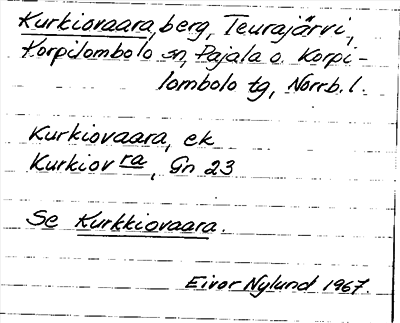 Kurkiovaara, berg, Teurajärvi,
Korpilombolo sn, Pajala o. Korpi-
lombolo tg, Norrb. l.
Kurkiovaara, ek
Kurkiov ra, Gn 23
Se Kurkkiovaara.
Eivor Nylund 1967.